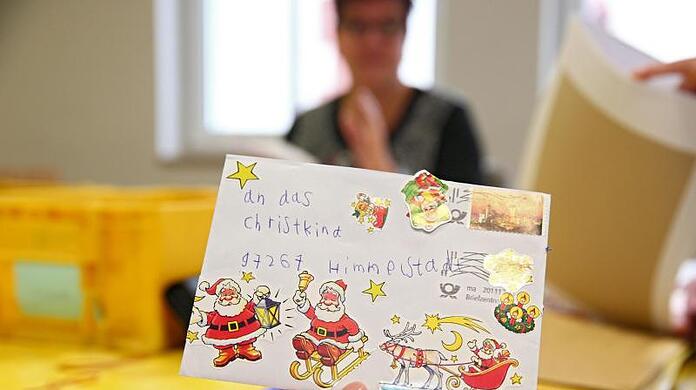 an das
christkind
97267 Himmelstadt
Briefzentrum